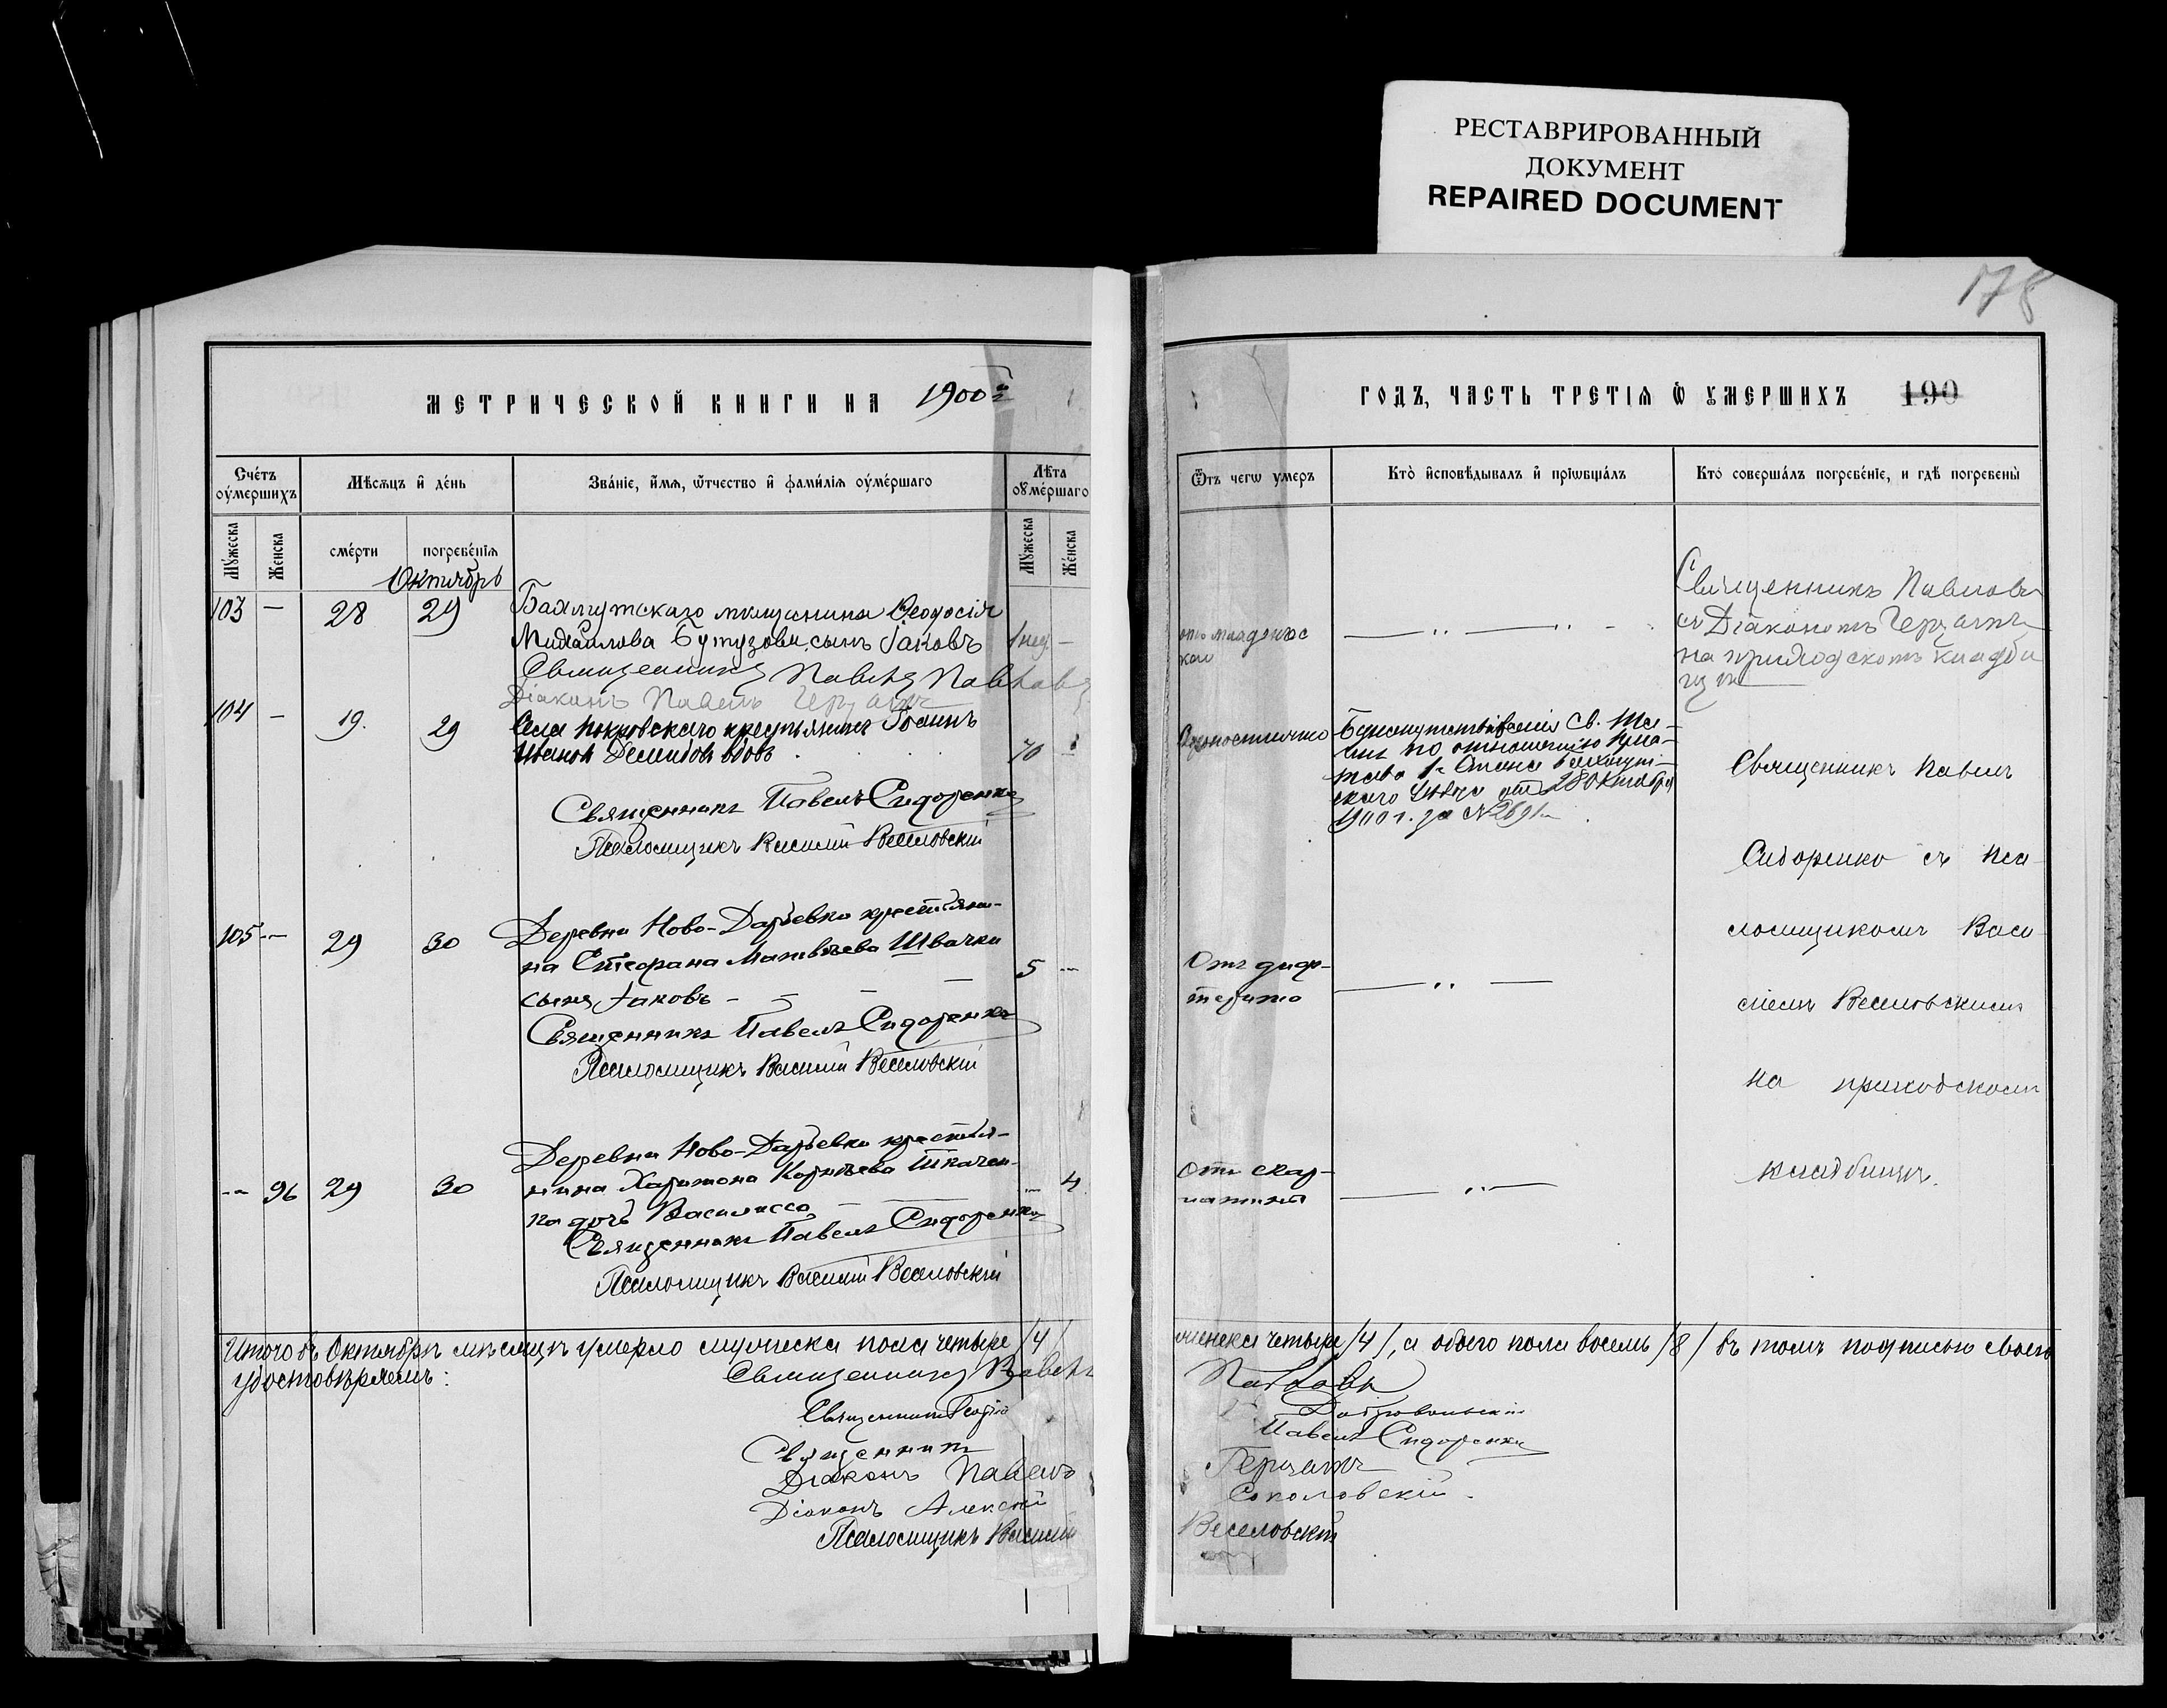 РЕСТАВРИРОВАННЫЙ
ДОКУМЕНТ
REPAIRED DOCUMENT
178
МЕТРИЧЕСКОЙ КНИГИ НА 1900й
ГОДЪ, ЧАСТЬ ТРЕТІЯ Ѡ УМЕРШИХЪ 190
Счетъ оумершихъ
Мѣсяцъ и день
Званіе, имя, ѿчество и фамилія оумершаго
Лѣта оумершаго
Ѿтъ чегѡ умеръ
Кто исповѣдывалъ и пріѡбщалъ
Кто совершалъ погребеніе, и гдѣ погребены
Мужеска
Женска
смерти
погребенія
Мужеска
Женска
Октябрь
103 — 28 29
Бахмутскаго мѣщанина Ѳеодосія
Михайлова Бутузова сынъ Іаковъ
1 нед. —
Священникъ Павелъ Павловъ
Діаконъ Павелъ
отъ младенчес
кой
Священникъ Павловъ
съ Діакономъ
на приходскомъ кладби
щѣ
104 — 19. 29
Села Покровскаго крестьянинъ Іоаннъ
Иванов Демидов вдовъ
70
Священникъ Павелъ Сидоренко
Псаломщикъ Василій Веселовскій
Скоропостижно
Св. Та-
инъ по отношенію При-
става 1го Стана Бахмут-
скаго Уѣзда отъ 28 Октября
1900 г. за № 2691
Священникъ Павелъ
Сидоренко съ Пса-
ломщикомъ Васи-
ліемъ Веселовскимъ
на приходскомъ
кладбищѣ.
105 — 29 30
Деревни Ново-Дарьевки крестьяни-
на Стефана Матвѣева Швачки
сынъ Іаковъ
5 —
Священникъ Павелъ Сидоренко
Псаломщикъ Василій Веселовскій
Отъ диф-
терита
— 96 29 30
Деревни Ново-Дарьевки крестья-
нина Харитона Корнѣева Ткачен-
ка дочь Василисса
— 4
Священникъ Павелъ Сидоренко
Псаломщикъ Василій Веселовскій
Отъ скар-
латины
Итого въ Октябрѣ мѣсяцѣ умерло мужеска пола четыре /4/
женска четыре /4/, а обоего пола восемь /8/ въ томъ подписью своею
удостовѣряемъ:
Священникъ Павелъ Павловъ
Священникъ Георгій Добровольскій
Священникъ Павелъ Сидоренко
Діаконъ Павелъ
Діаконъ Алексій Соколовскій
Псаломщикъ Василій Веселовскій